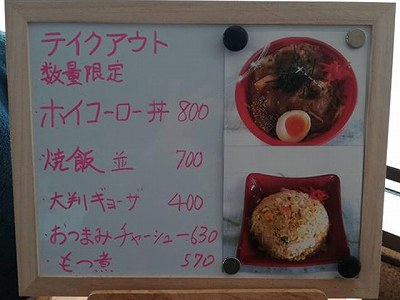 テイクアウト
数量限定
ホイコーロー丼 800
焼飯 並 700
大判ギョーザ 400
・おつまみチャーシュー 630
・もつ煮 570